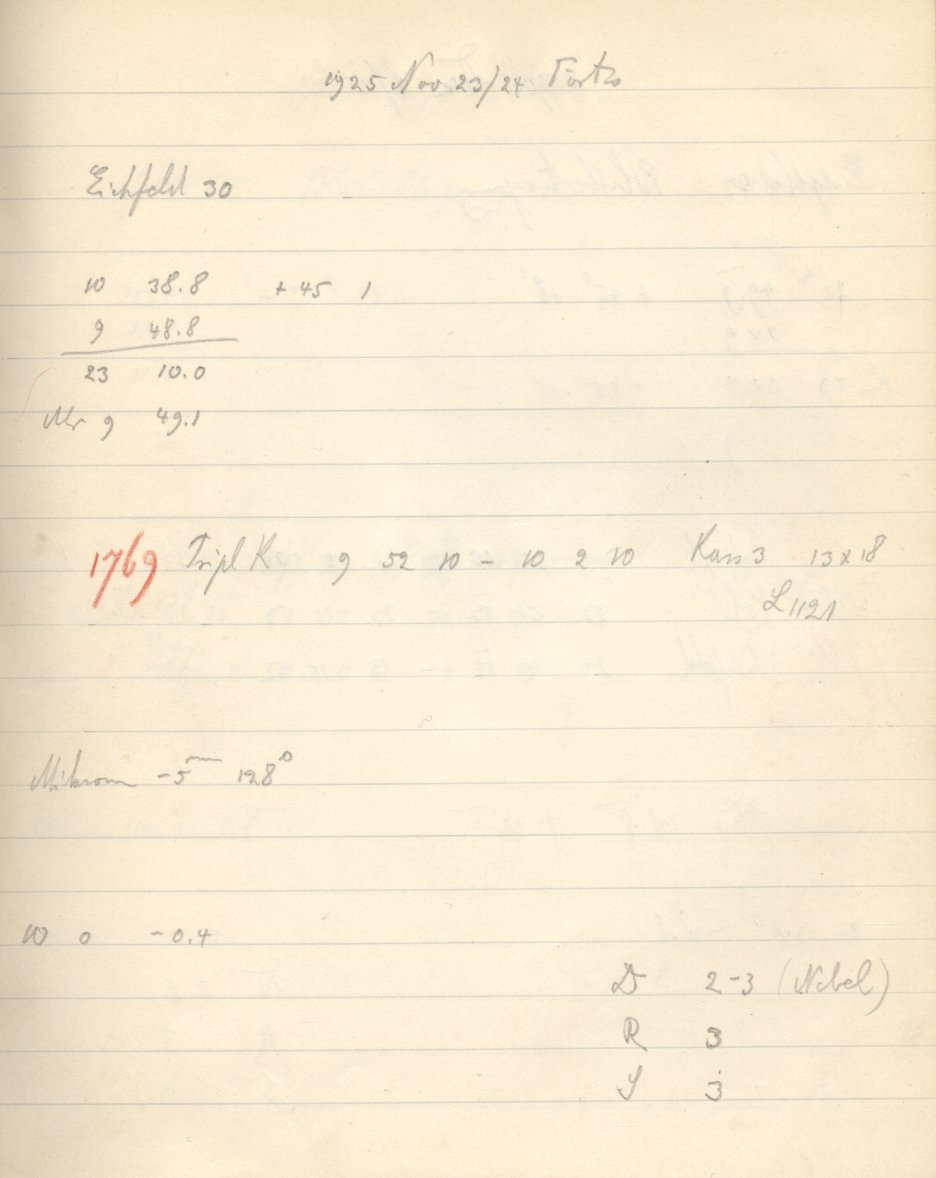 1925 Nov 23/24 Forts
Eichfeld 30
10 38.8 + 45 1
9 48.8
23 10.0
Uhr 9 49.1
1769 Tripl K 9 52 10 - 10 2 10 Kass 3 13 x 18
L 1121
Mikrom -5mm 128°
10 0 -0.4
D 2-3 (Nebel)
R 3
S 3